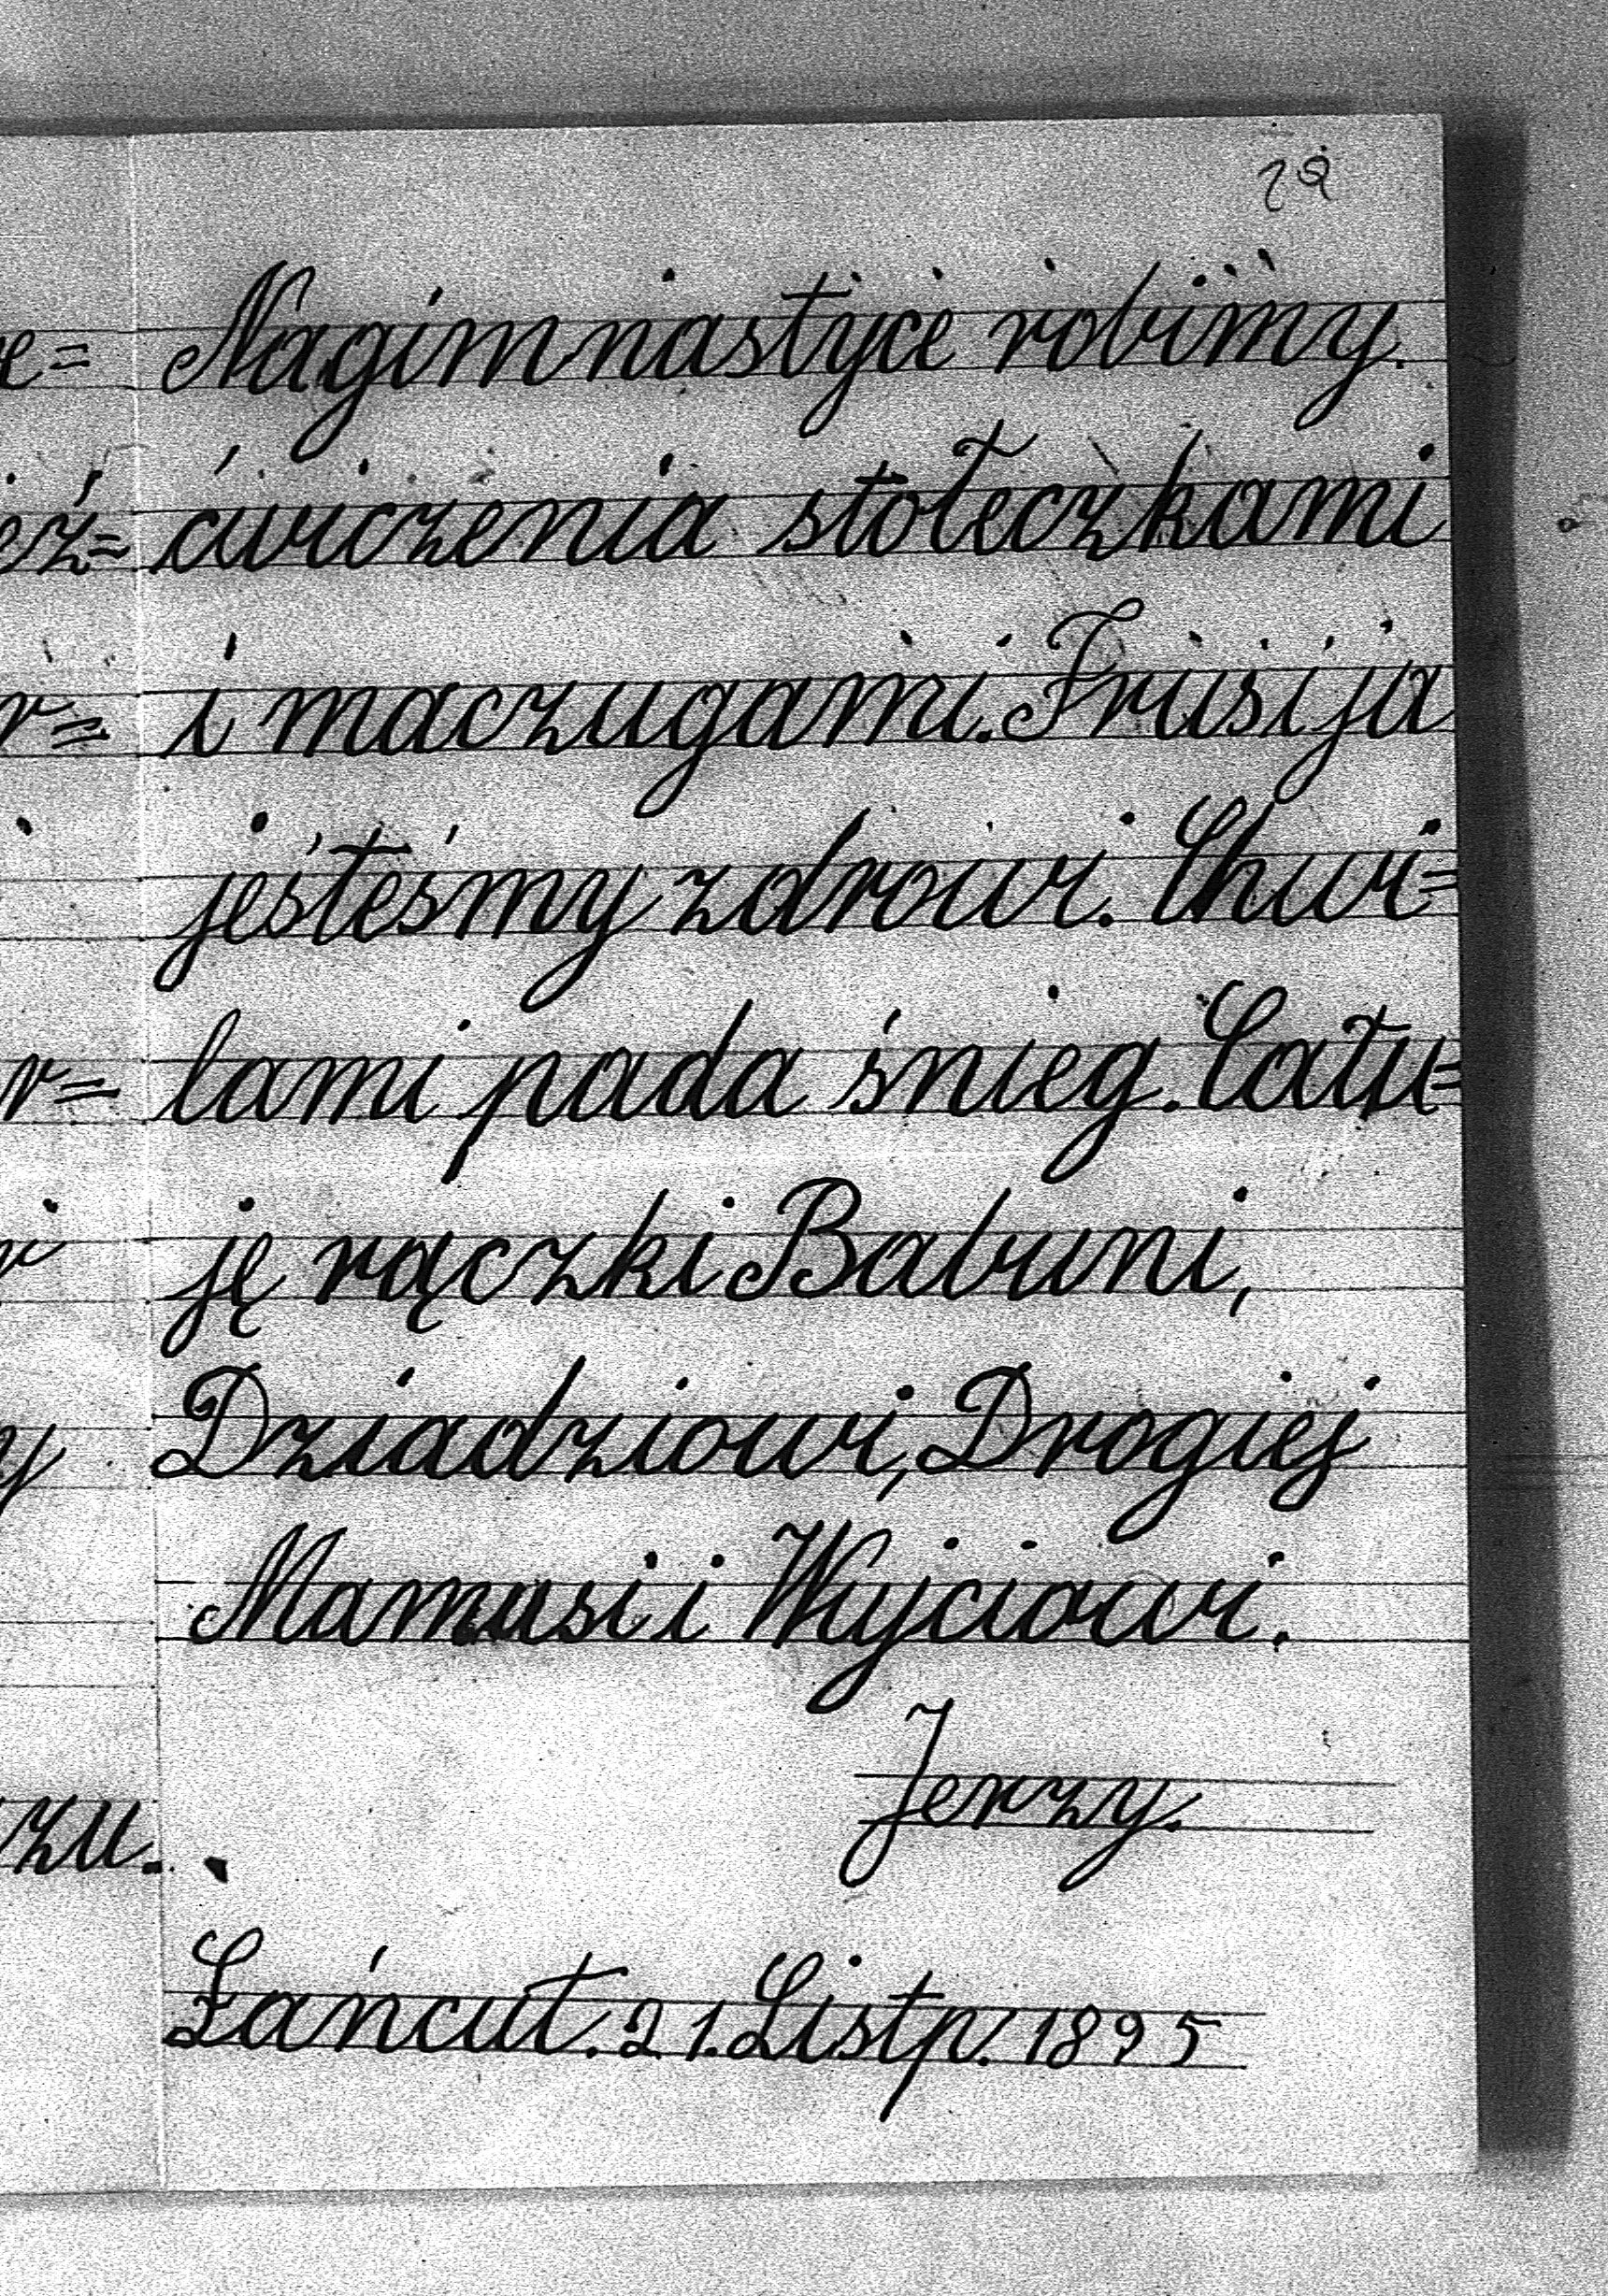 Na gimnastyce robimy
ćwiczenia stołeczkami
i maczugami. Fruś i ja
jesteśmy zdrowi. Chwi=
lami pada śnieg. Cału=
ję rączki Babuni,
Dziadziowi, Drogiej
Mamusi i Wujciowi.
Jerzy.
zu.
Łańcut. 21. Listp. 1895